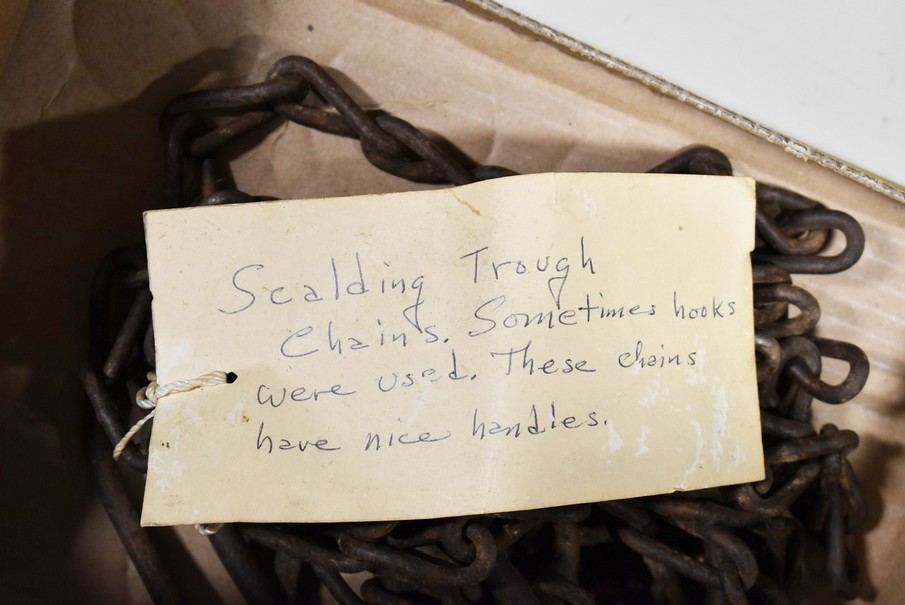 Scalding Trough
Chains. Sometimes hooks
were used. These chains
have nice handles.